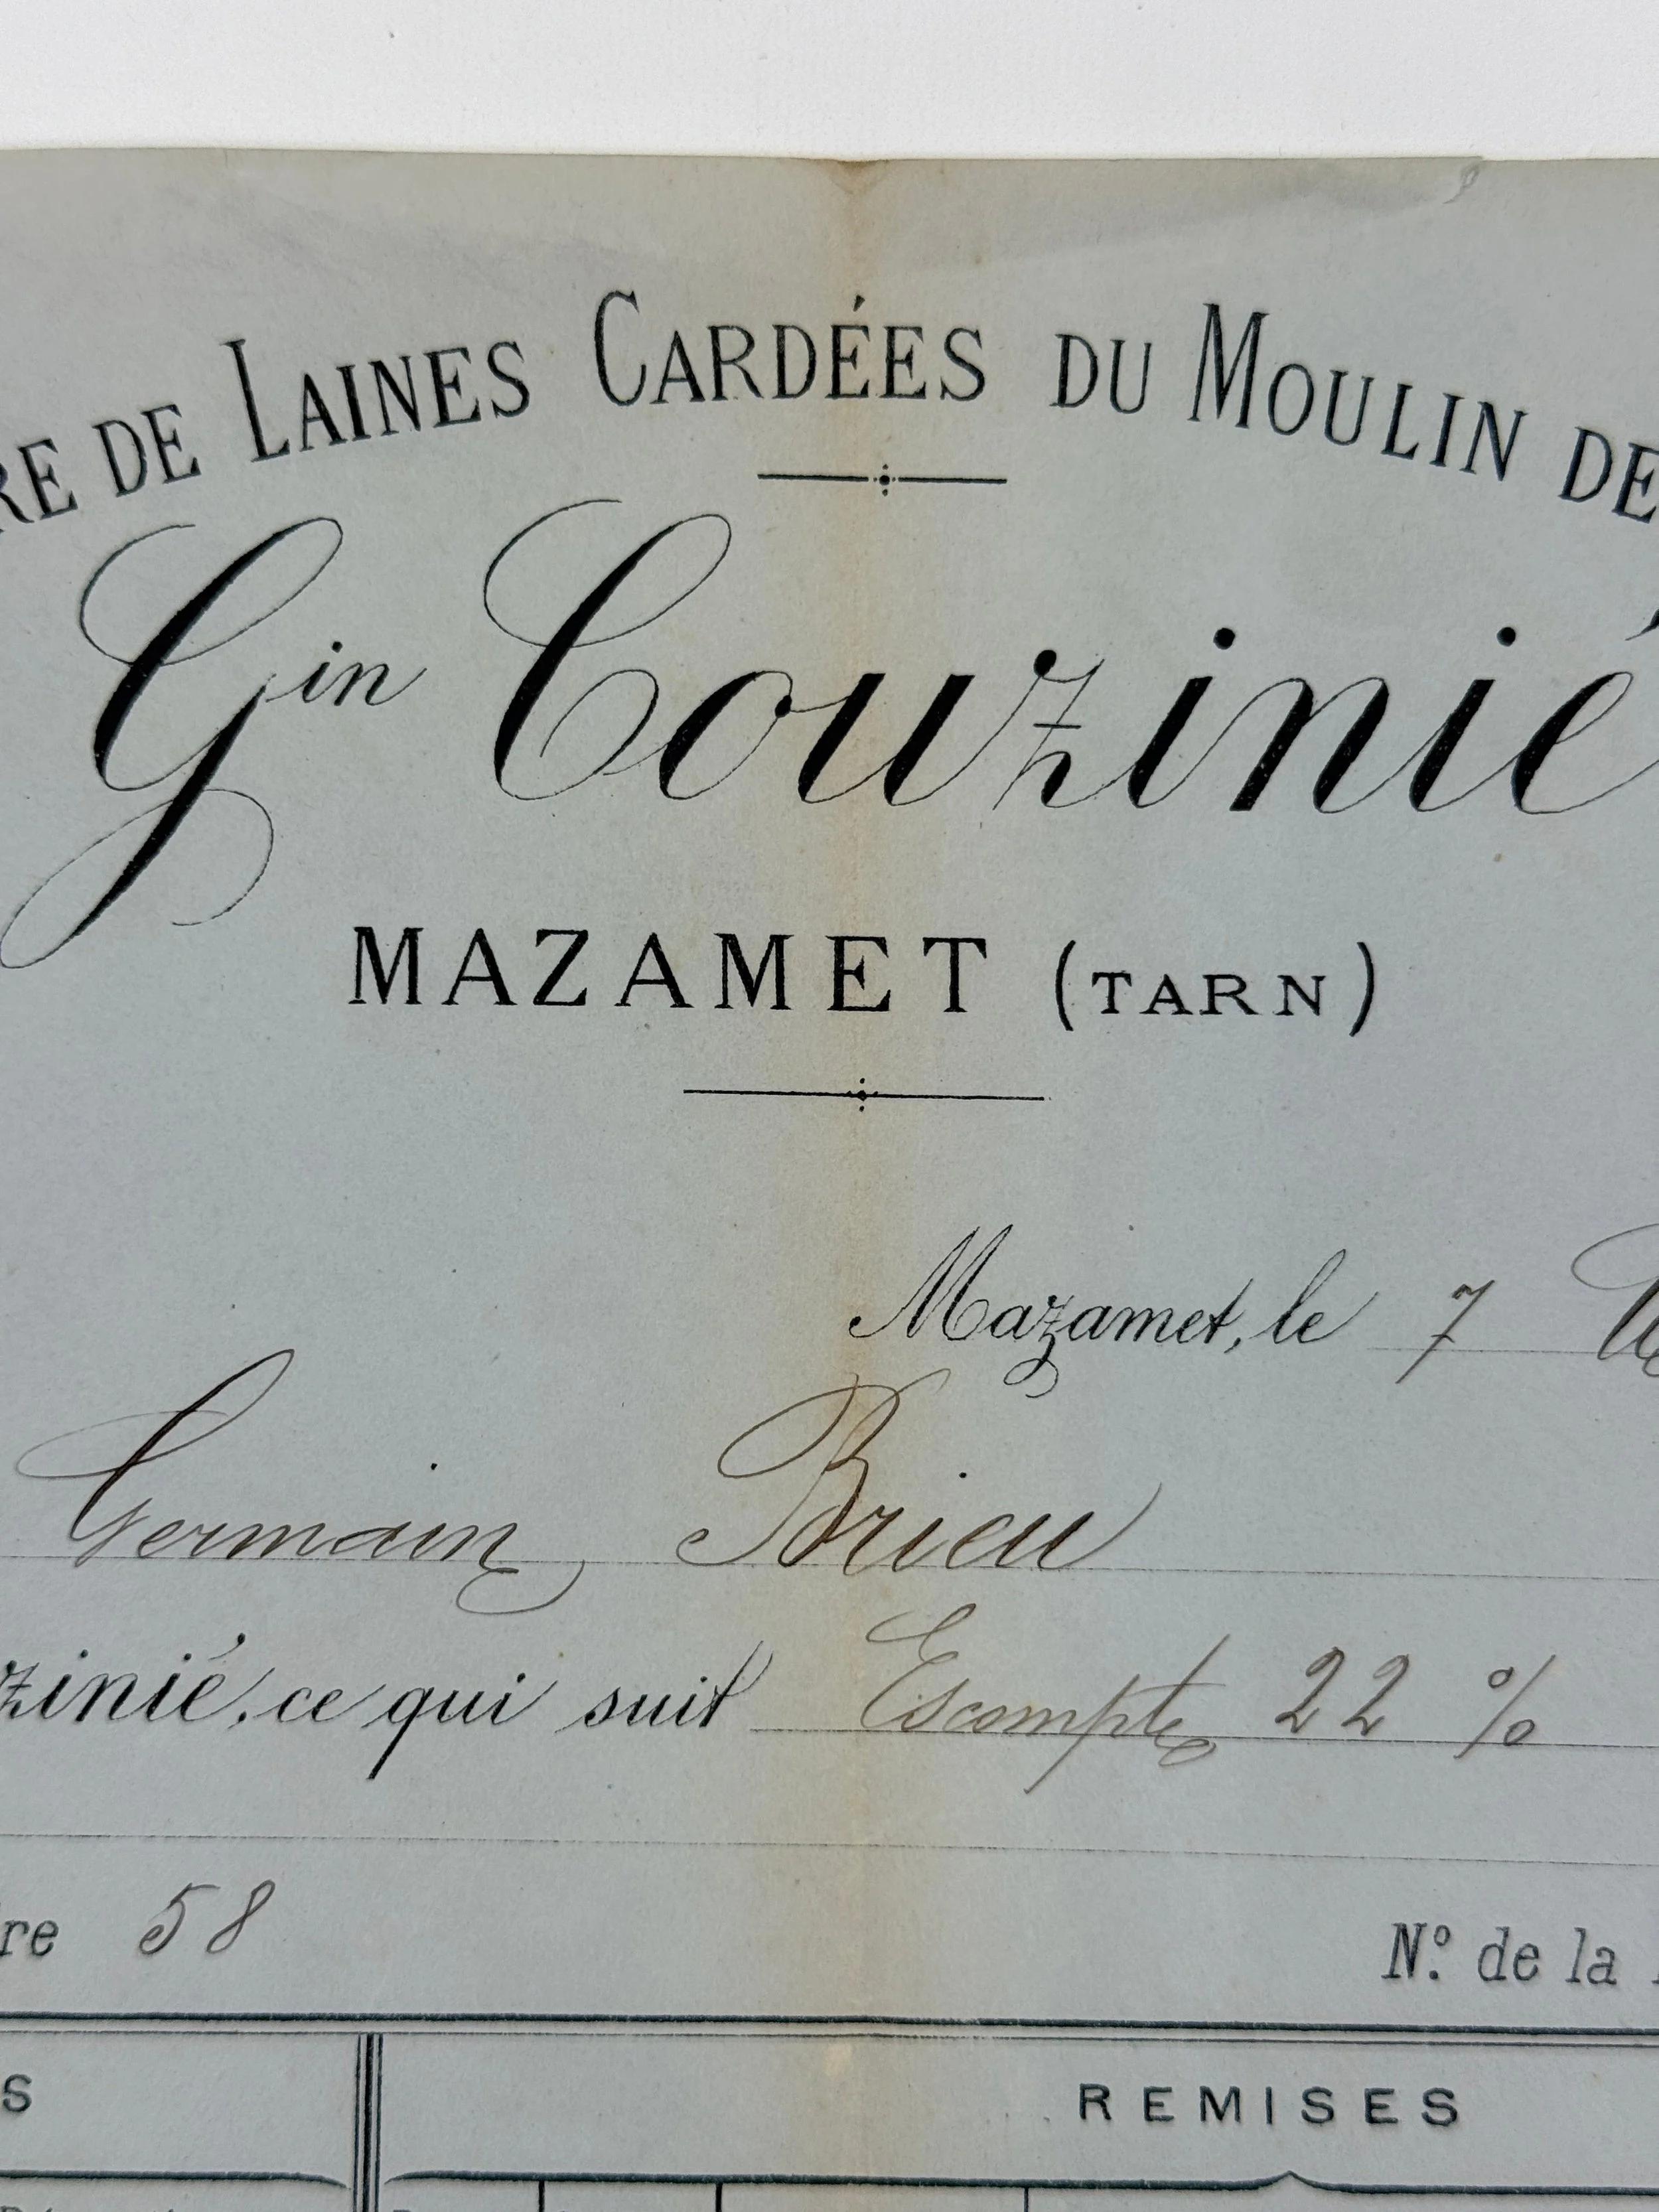 RE DE LAINES CARDÉES DU MOULIN DE
Gin Couzinié
MAZAMET (TARN)
Mazamet, le 7
Germain Brieu
zinié, ce qui suit Escompte 22 %
re 58
N.º de la
S
REMISES